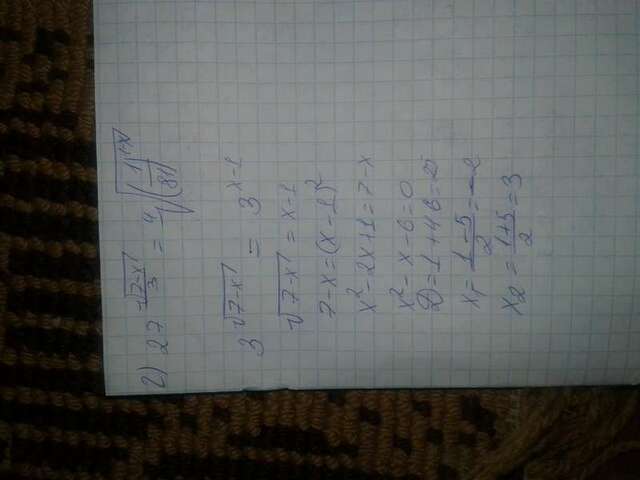 г) 27^(√(7-x)/3) = ⁴√((1/81)^(1-x))
3^(√(7-x)) = 3^(x-1)
√(7-x) = x-1
7-x=(x-1)²
x²-2x+1=7-x
x²-x-6=0
D=1+4·6=25
x₁=(1-5)/2=-2
x₂=(1+5)/2=3